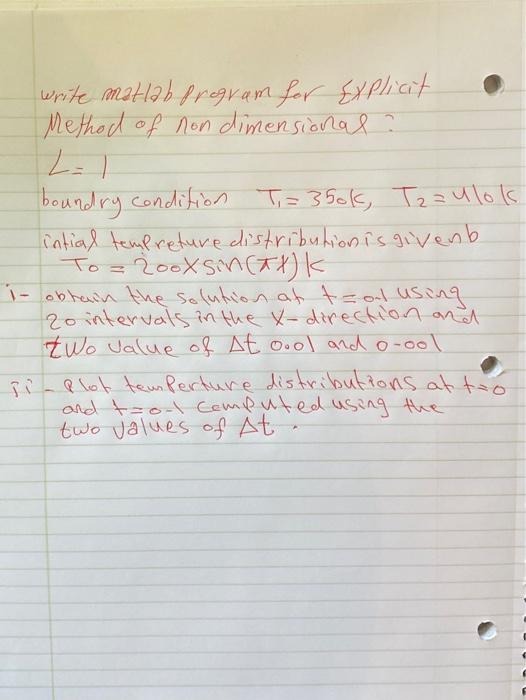 write matlab program for Explicit
Method of non dimensional :
L = 1
boundry condition T1 = 350K, T2 = 410K
intial tempreture distribution is given b
To = 200 X sin(πX) K
i- obtain the solution at t = 0.1 using
20 intervals in the X-direction and
two value of Δt 0.01 and 0.001
ii - Plot temperture distributions at t=0
and t=0.1 computed using the
two values of Δt .